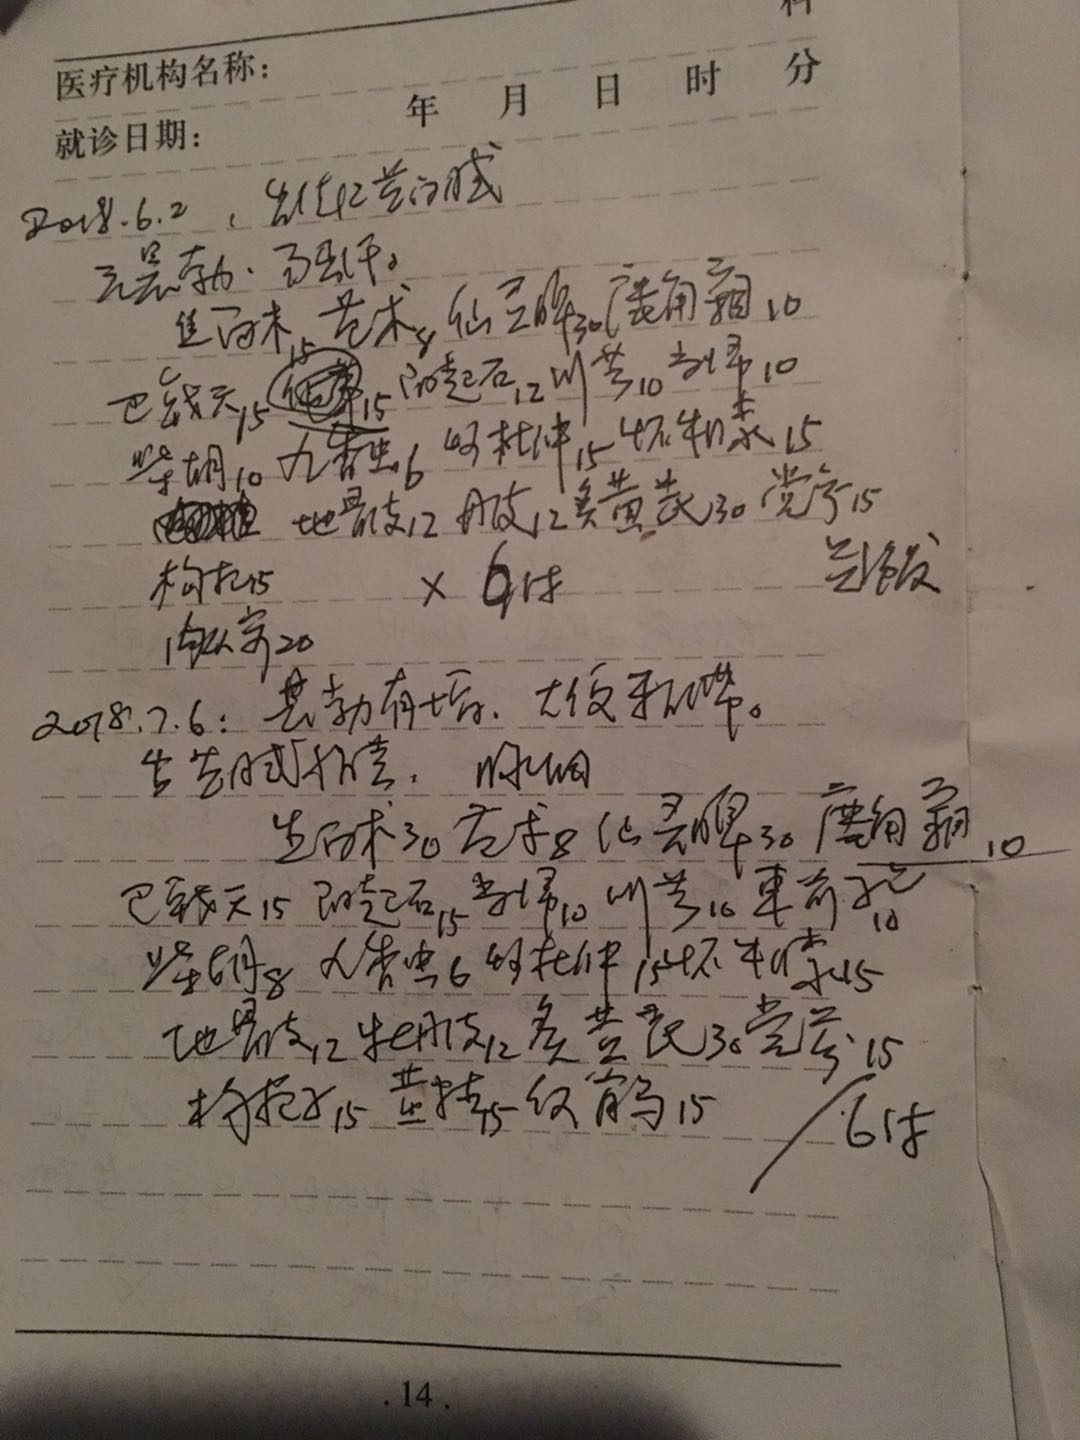 科
医疗机构名称：
就诊日期： 年 月 日 时 分
2018.6.2，舌红苔白腻
无晨勃.
生白术15 苍术8 仙灵脾30 鹿角霜10
巴戟天15 15 阳起石12 川芎10 当归10
柴胡10 九香虫6 炒杜仲15 怀牛膝15
地骨皮12 丹皮12 炙黄芪30 党参15
枸杞15 × 6付
肉苁蓉20
2018.7.6：晨勃有增.大便
舌苔腻. 脉细
生白术30 苍术8 仙灵脾30 鹿角霜10
巴戟天15 阳起石15 当归10 川芎10 车前子10
柴胡8 九香虫6 炒杜仲15 怀牛膝15
地骨皮12 牡丹皮12 炙黄芪30 党参15
枸杞子15 黄精15 15 / 6付
.14.